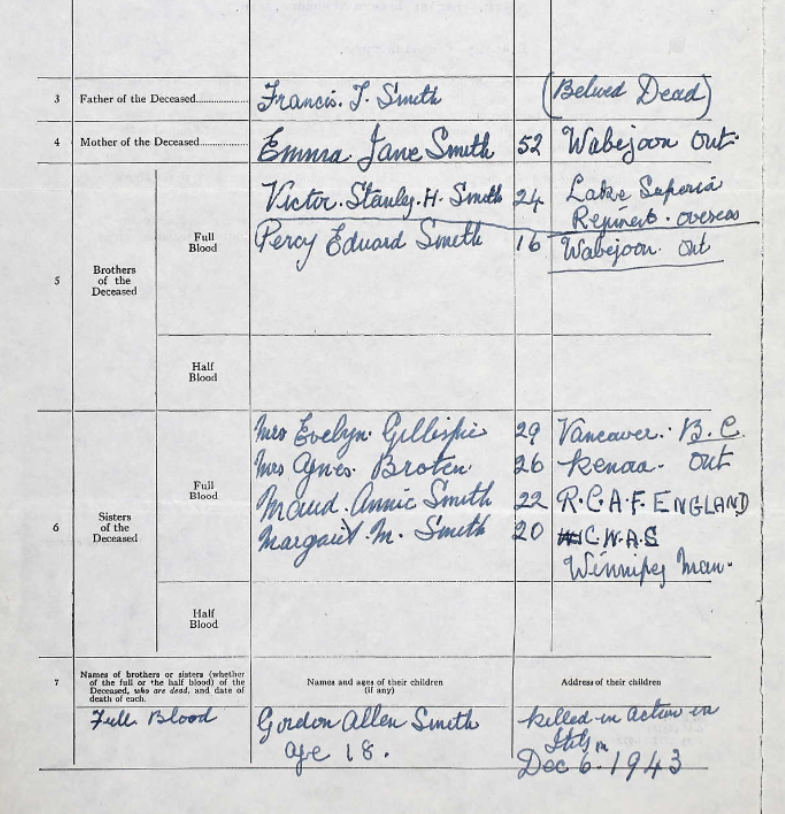 3 Father of the Deceased............ Francis. J. Smith (Belived Dead)
4 Mother of the Deceased............ Emma Jane Smith 52 Wabejoon Out.
5 Brothers of the Deceased
Full Blood
Victor. Stanley. H. Smith 24 Lake Superia
Regiment. overseas
Percy Eduard Smith 16 Wabejoon. Out
Half Blood
6 Sisters of the Deceased
Full Blood
Mrs Evelyn. Gillispie 29 Vancauver. B.C.
Mrs Agnes. Broten. 26 Kenora. Out
Maud. Annie Smith 22 R.C.A.F. ENGLAND
Margaret. M. Smith 20 C.W.A.S
Winnipeg Man.
Half Blood
7 Names of brothers or sisters (whether
of the full or the half blood) of the
Deceased, who are dead, and date of
death of each.
Names and ages of their children
(if any)
Address of their children
Full Blood Gordon Allen Smith killed in action in
age 18. Italy
Dec 6. 1943